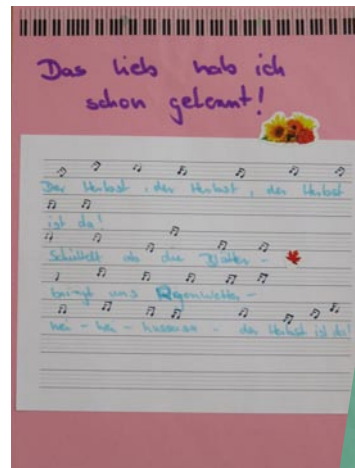 Das Lied hab ich
schon gelernt!
Der Herbst, der Herbst, der Herbst
ist da!
Schüttelt ab die Blätter -
bringt uns Regenwetter -
hei - hei - hussassa - der Herbst ist da!